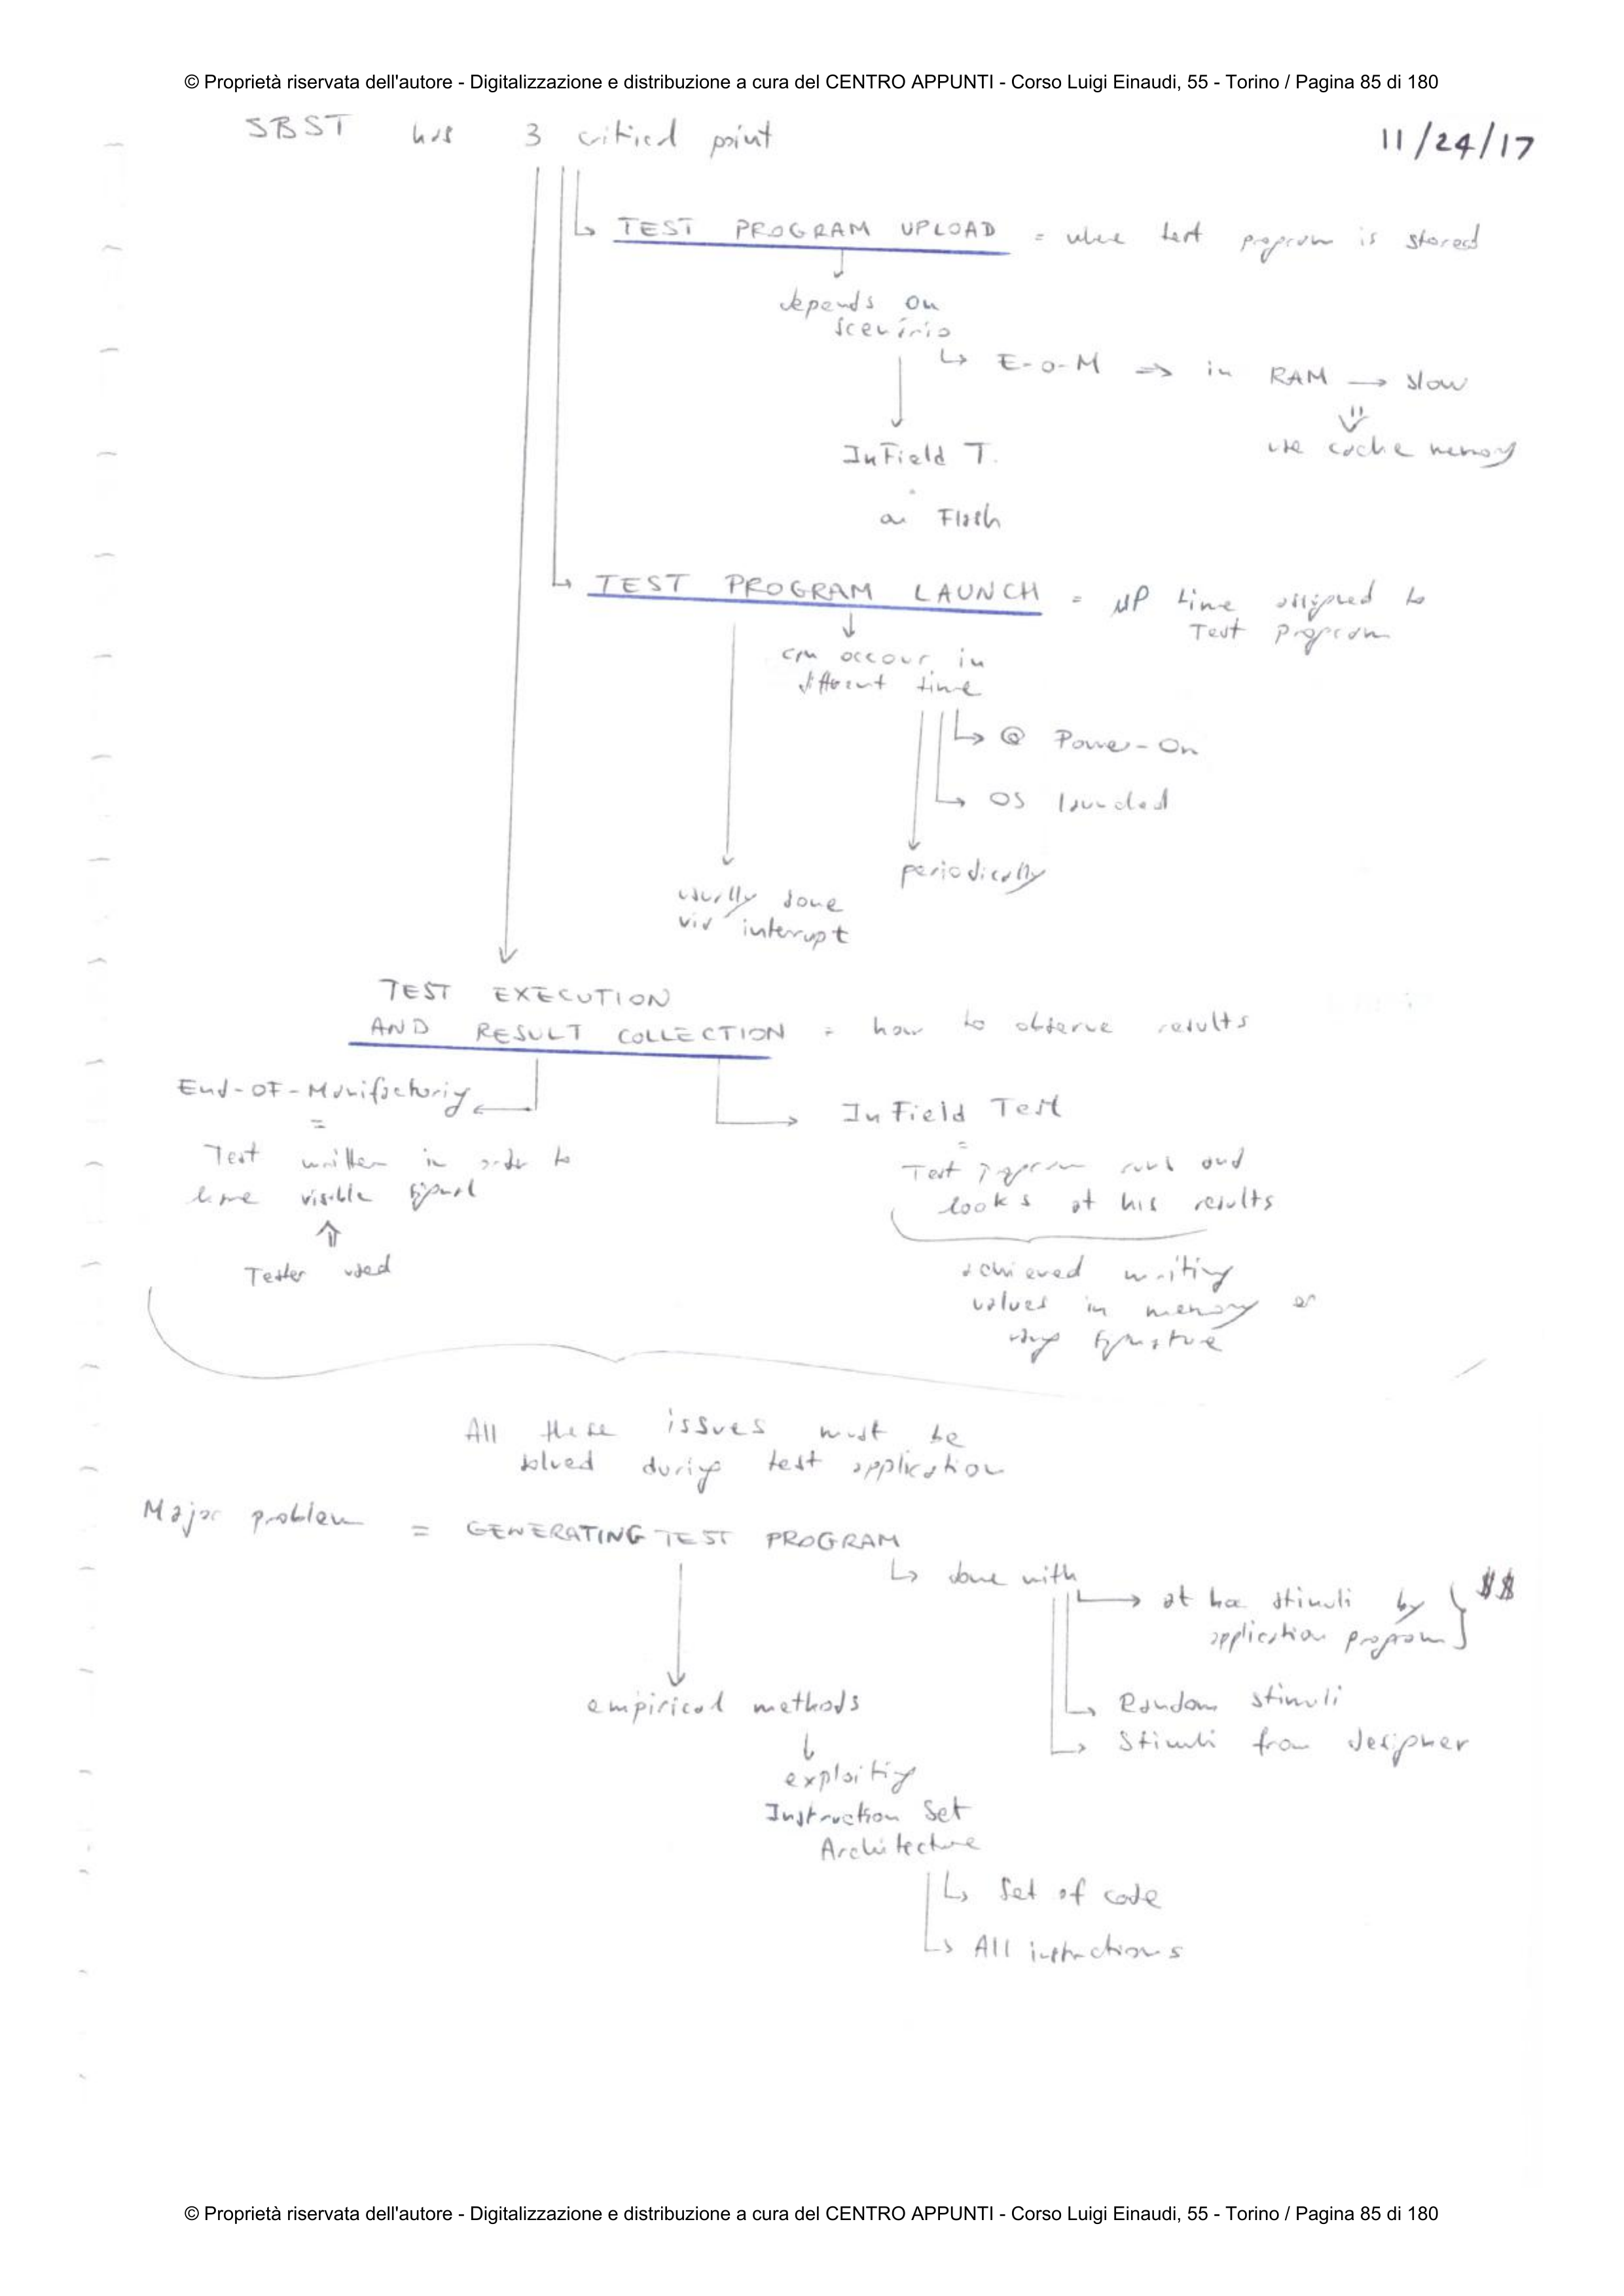 © Proprietà riservata dell'autore - Digitalizzazione e distribuzione a cura del CENTRO APPUNTI - Corso Luigi Einaudi, 55 - Torino / Pagina 85 di 180
SBST has 3 critical point
11/24/17
TEST PROGRAM UPLOAD = where test program is stored
depends on
scenario
E-O-M => in RAM → slow
use cache memory
InField T.
on Flash
TEST PROGRAM LAUNCH = μP time assigned to
Test program
can occour in
different time
@ Power-On
OS launched
periodically
usually done
via interrupt
TEST EXECUTION
AND RESULT COLLECTION = how to observe results
End-OF-Manifacturing
=
Test written in order to
have visible signal
Tester used
InField Test
=
Test program runs and
looks at his results
achieved writing
values in memory or
using signature
All these issues must be
solved during test application
Major problem = GENERATING TEST PROGRAM
done with
stimuli by
application program } $$
Random stimuli
Stimuli from designer
empirical methods
exploiting
Instruction Set
Architecture
Set of code
All instructions
© Proprietà riservata dell'autore - Digitalizzazione e distribuzione a cura del CENTRO APPUNTI - Corso Luigi Einaudi, 55 - Torino / Pagina 85 di 180